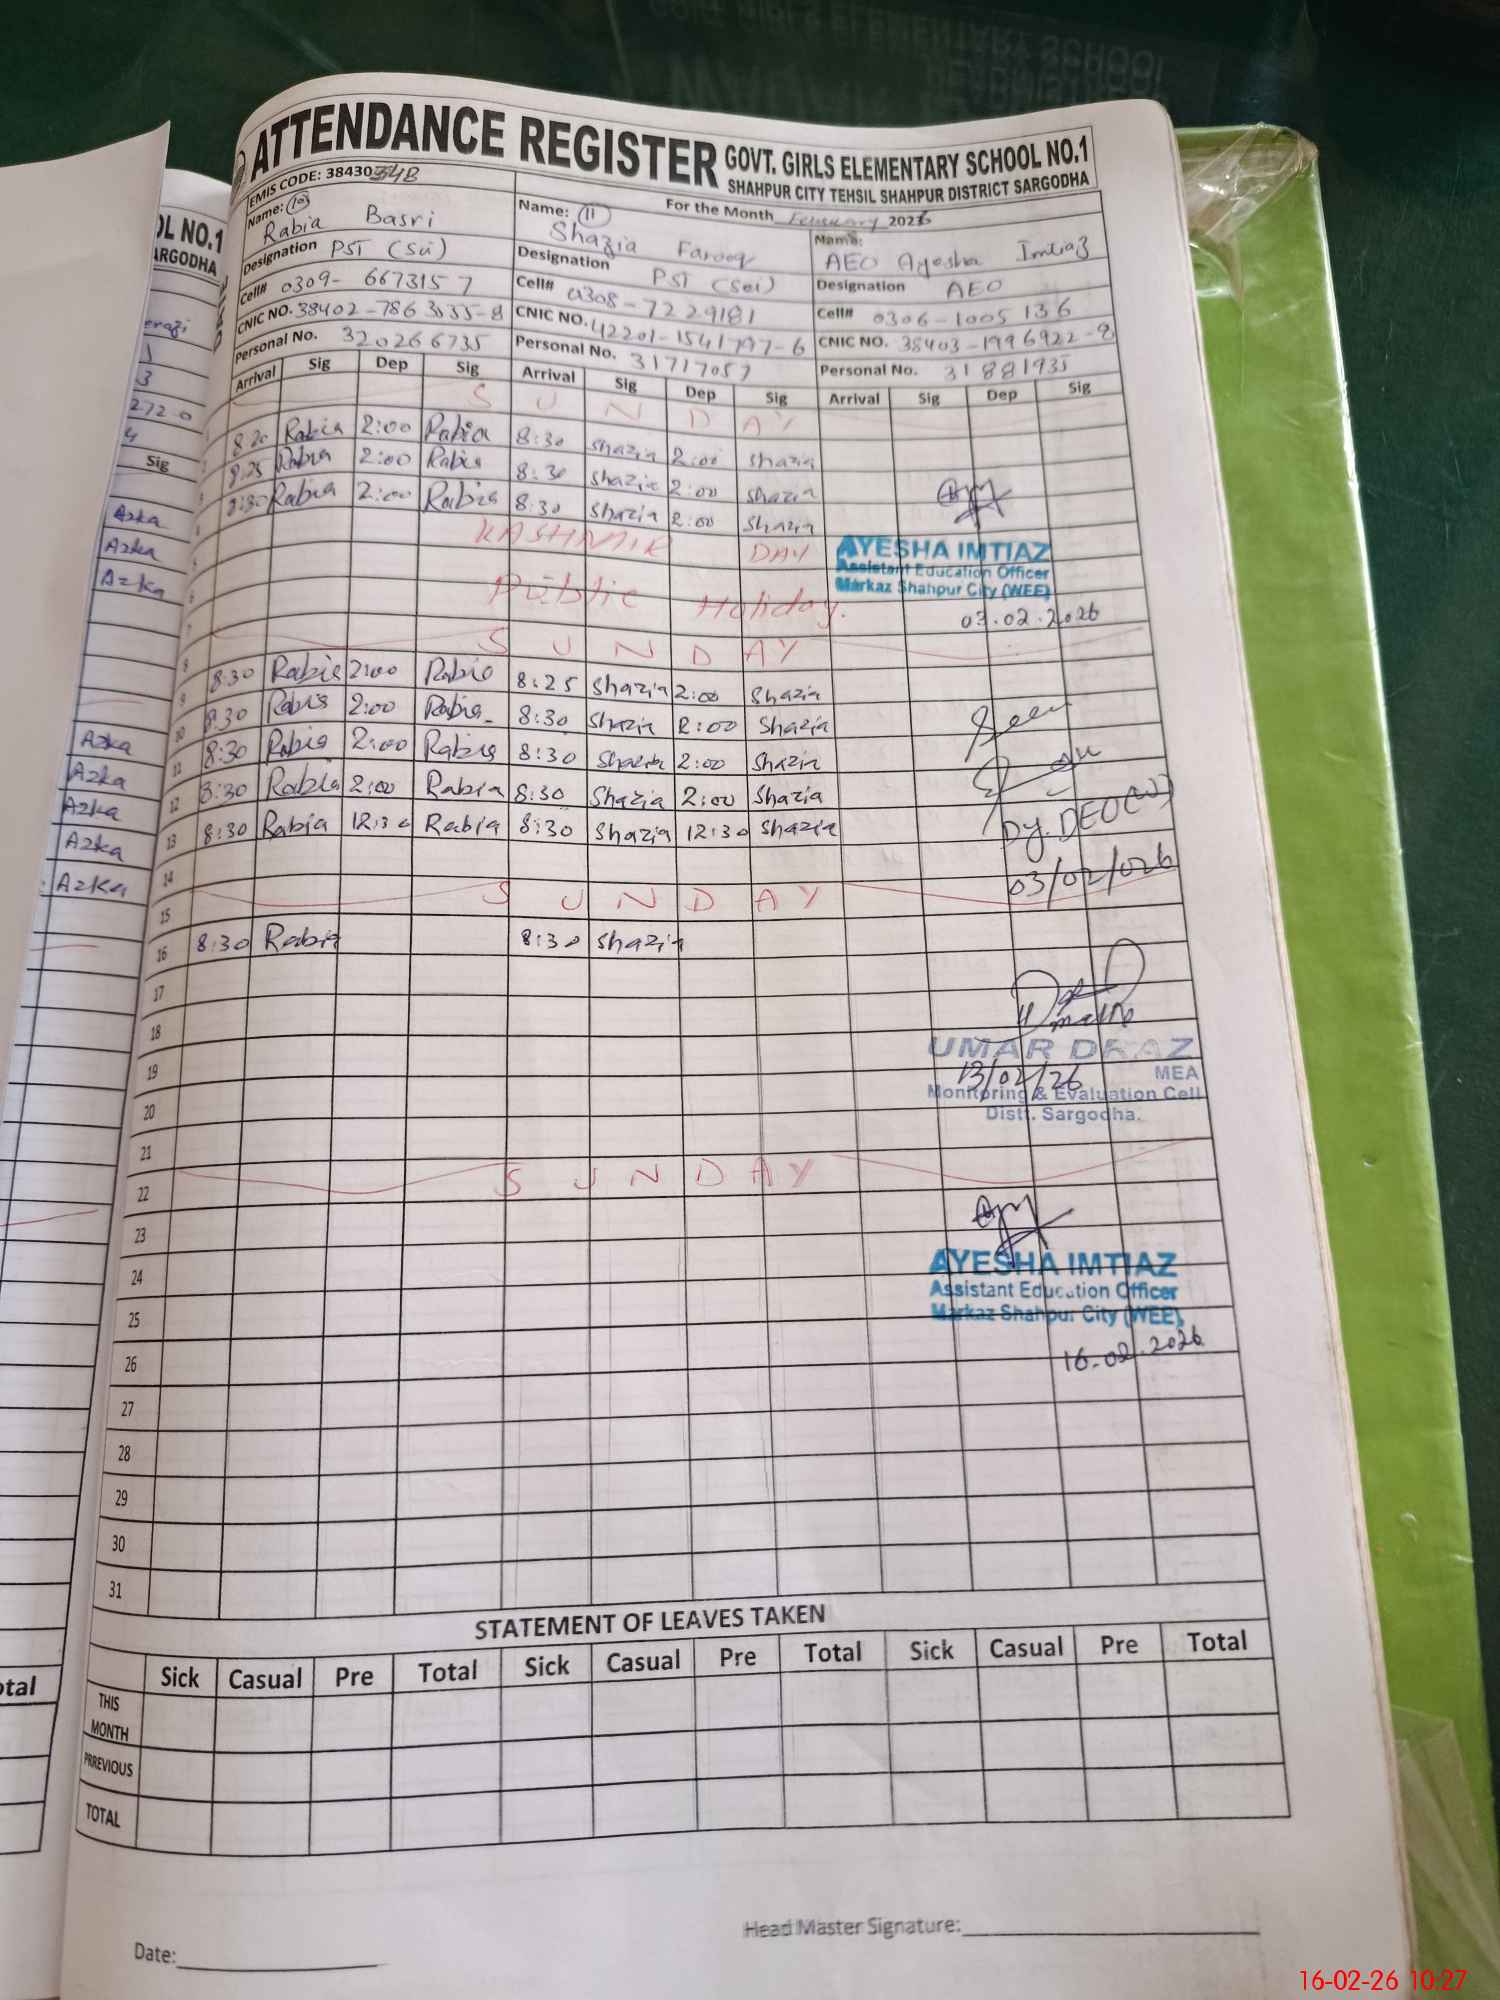 ATTENDANCE REGISTER GOVT. GIRLS ELEMENTARY SCHOOL NO.1
SHAHPUR CITY TEHSIL SHAHPUR DISTRICT SARGODHA
EMIS CODE: 38430
For the Month February 2026
Name: 10 Rabia Basri
Name: 11 Shazia Farooq
Name: AEO Ayesha Imtiaz
Designation PST (Sci)
Designation PST (Sci)
Designation AEO
Cell# 0309-6673157
Cell# 0308-7229181
Cell# 0306-1005136
CNIC NO. 38402-7863035-8
CNIC NO. 42201-1541797-6
CNIC NO. 38403-1996922-8
Personal No. 320266735
Personal No. 31717057
Personal No. 31881935
Arrival Sig Dep Sig Arrival Sig Dep Sig Arrival Sig Dep Sig
SUNDAY
8:20 Rabia 2:00 Rabia 8:30 Shazia 2:00 Shazia
8:25 Rabia 2:00 Rabia 8:30 Shazia 2:00 Shazia
8:30 Rabia 2:00 Rabia 8:30 Shazia 2:00 Shazia
KASHMIR DAY
Public Holiday.
AYESHA IMTIAZ
Assistant Education Officer
Markaz Shahpur City (WEE)
03.02.2026
7
8 SUNDAY
9 8:30 Rabia 2:00 Rabia 8:25 Shazia 2:00 Shazia
10 8:30 Rabia 2:00 Rabia 8:30 Shazia 2:00 Shazia
11 8:30 Rabia 2:00 Rabia 8:30 Shazia 2:00 Shazia
12 8:30 Rabia 2:00 Rabia 8:30 Shazia 2:00 Shazia
13 8:30 Rabia 12:30 Rabia 8:30 Shazia 12:30 Shazia
Seen
Dy. DEO(W)
03/02/026
14
15 SUNDAY
16 8:30 Rabia 8:30 Shazia
17
18
UMAR DRAZ
13/02/26
MEA
Monitoring & Evaluation Cell
Distt. Sargodha.
19
20
21
22 SUNDAY
23
24
AYESHA IMTIAZ
Assistant Education Officer
Markaz Shahpur City (WEE)
16.02.2026
25
26
27
28
29
30
31
STATEMENT OF LEAVES TAKEN
Sick Casual Pre Total Sick Casual Pre Total Sick Casual Pre Total
THIS MONTH
PRREVIOUS
TOTAL
Head Master Signature:
Date:
OL NO.1
ARGODHA
Sig
Azka
Azka
Azka
Azka
Azka
Azka
Azka
Azka
otal
16-02-26 10:27